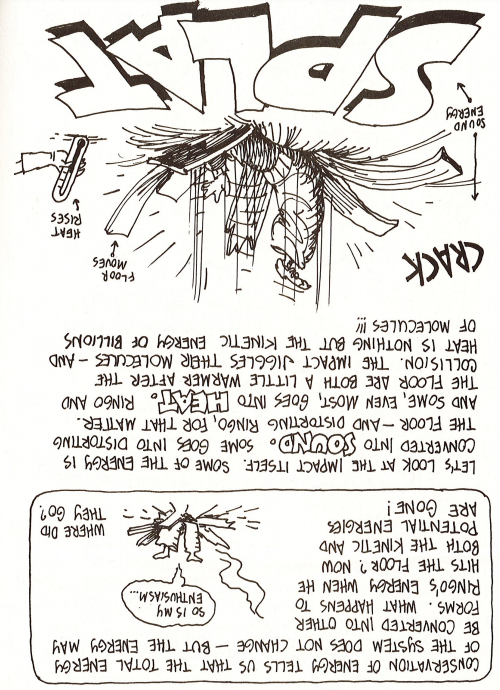 CONSERVATION OF ENERGY TELLS US THAT THE TOTAL ENERGY
OF THE SYSTEM DOES NOT CHANGE — BUT THE ENERGY MAY
BE CONVERTED INTO OTHER
FORMS. WHAT HAPPENS TO
RINGO'S ENERGY WHEN HE
HITS THE FLOOR? NOW
BOTH THE KINETIC AND
POTENTIAL ENERGIES
ARE GONE!
SO IS MY
ENTHUSIASM...
WHERE DID
THEY GO?
LET'S LOOK AT THE IMPACT ITSELF. SOME OF THE ENERGY IS
CONVERTED INTO SOUND. SOME GOES INTO DISTORTING
THE FLOOR — AND DISTORTING RINGO, FOR THAT MATTER.
AND SOME, EVEN MOST, GOES INTO HEAT. RINGO AND
THE FLOOR ARE BOTH A LITTLE WARMER AFTER THE
COLLISION. THE IMPACT JIGGLES THEIR MOLECULES — AND
HEAT IS NOTHING BUT THE KINETIC ENERGY OF BILLIONS
OF MOLECULES!!!
CRACK
FLOOR
MOVES
HEAT
RISES
SOUND
ENERGY
SPLAT